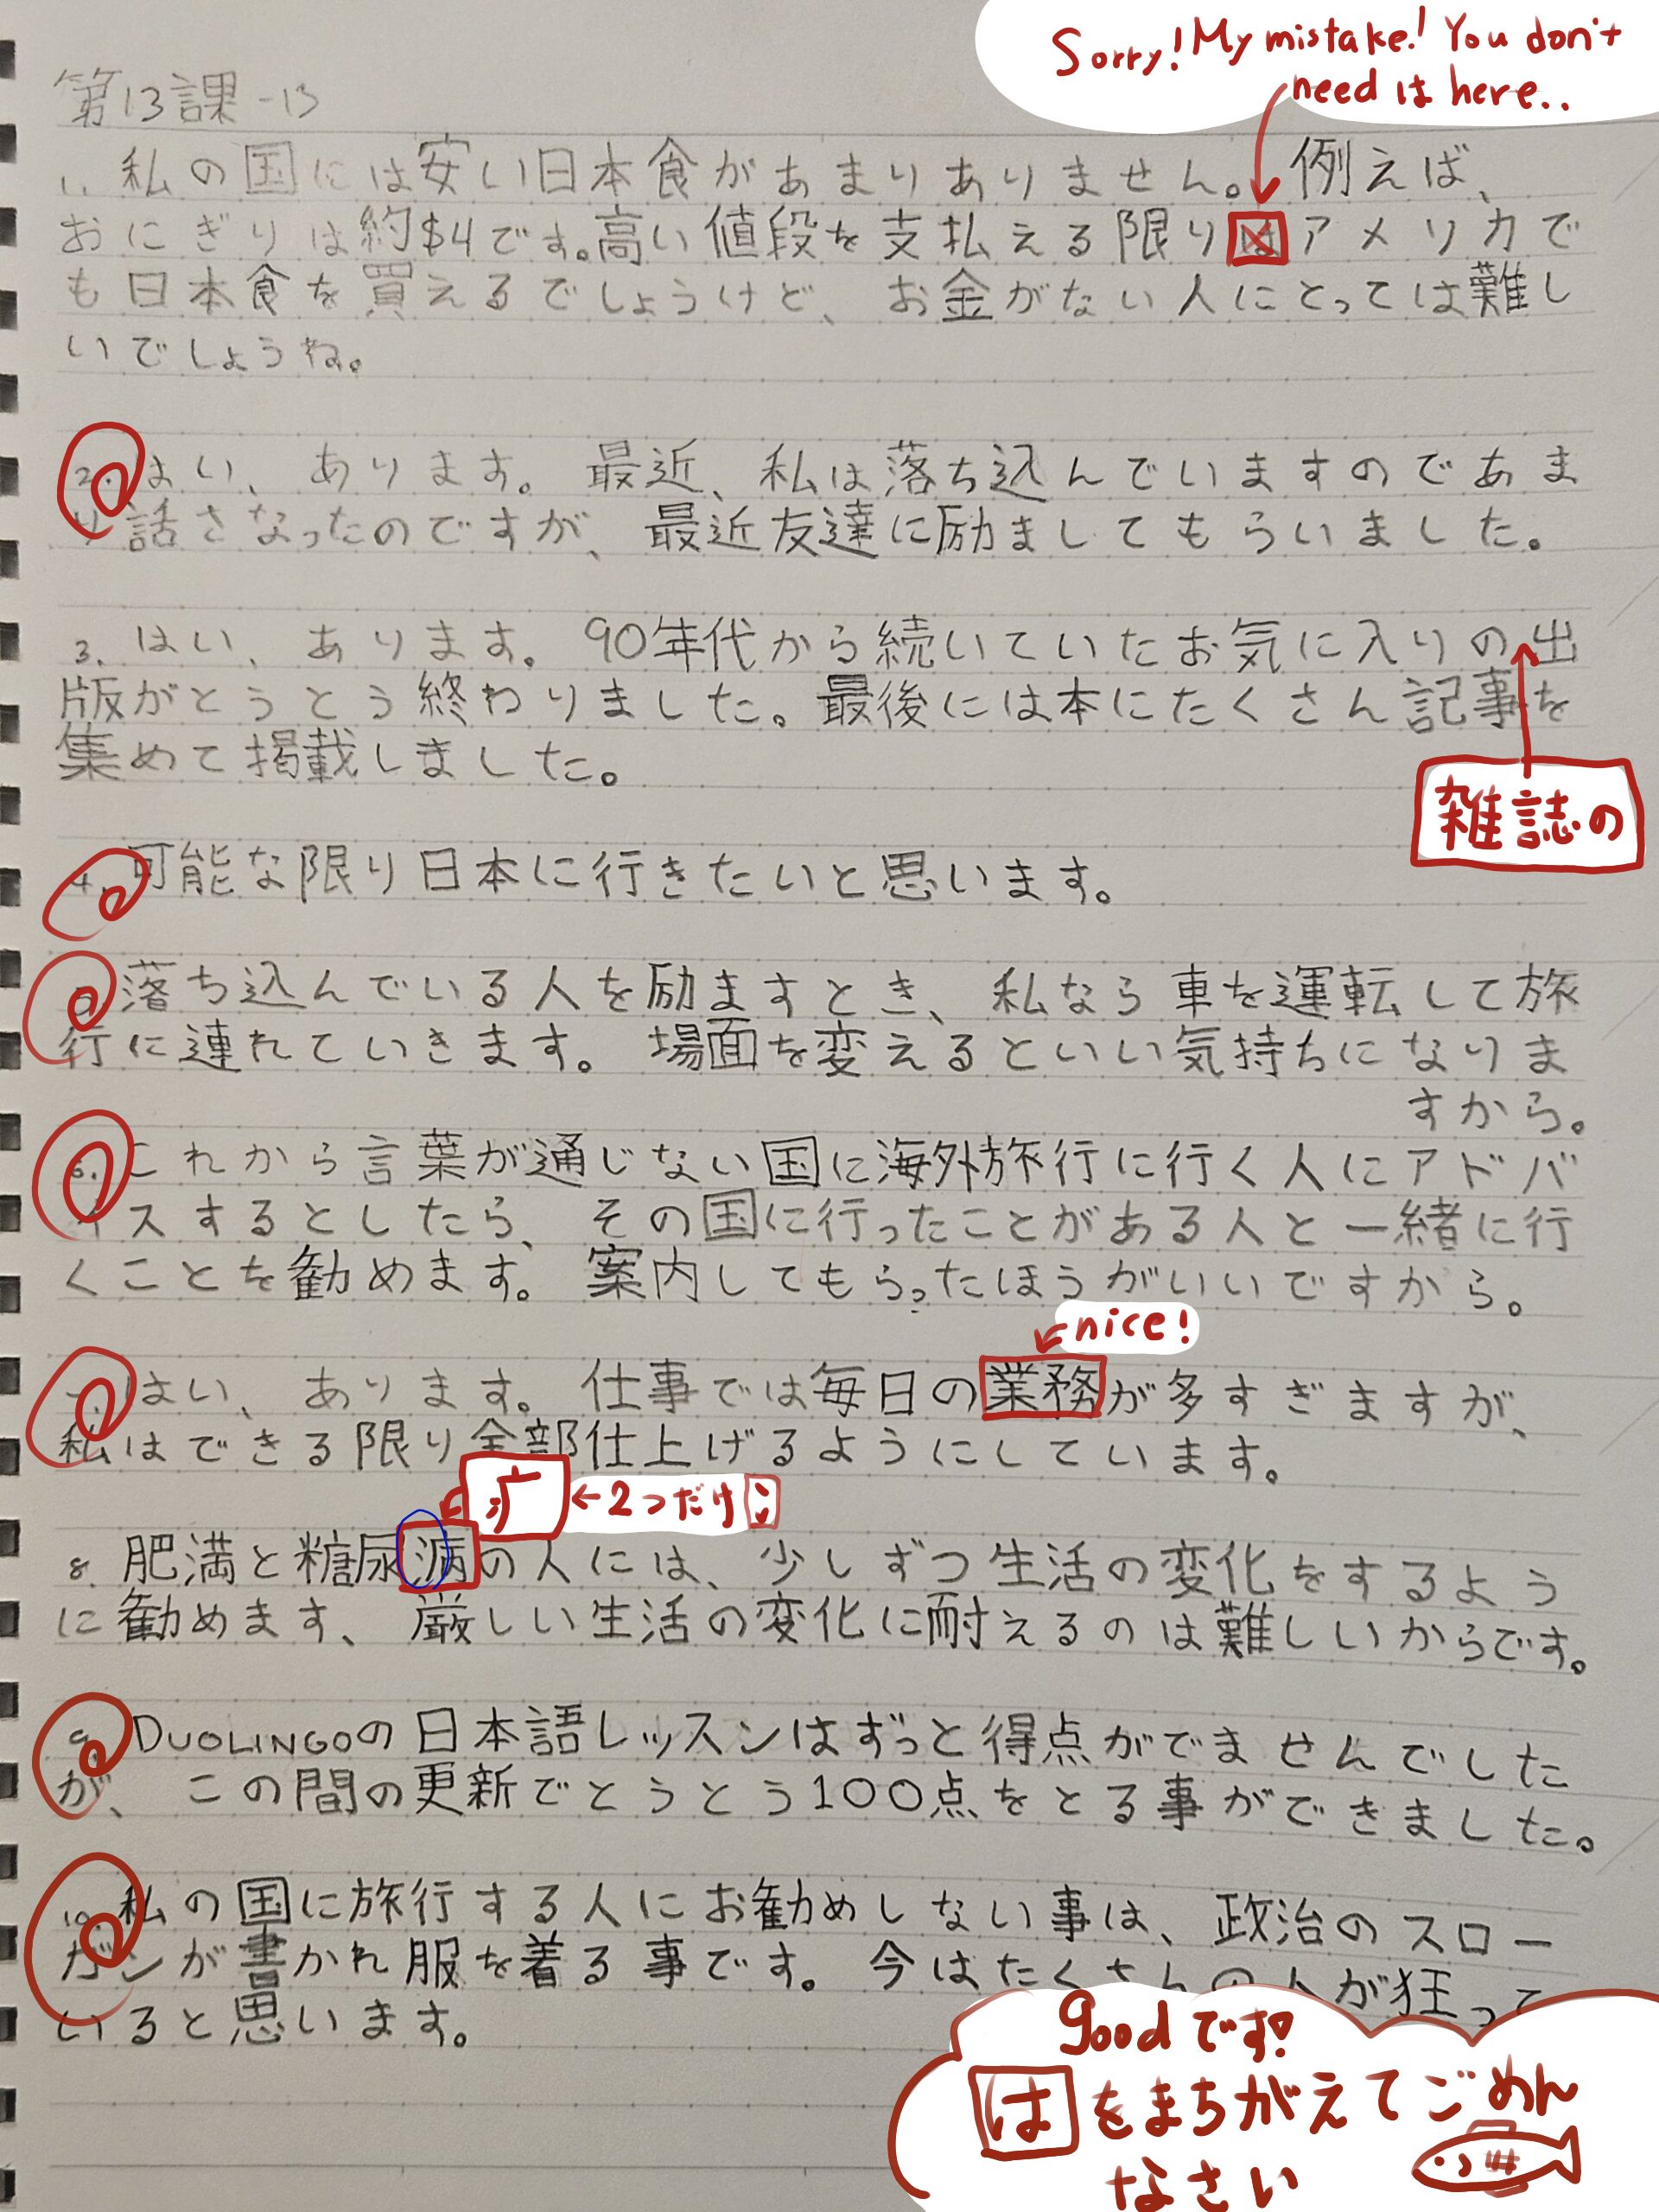 Sorry! My mistake! You don't
need は here..
第13課-13
1. 私の国には安い日本食があまりありません。例えば、
おにぎりは約$4です。高い値段を支払える限りはアメリカで
も日本食を買えるでしょうけど、お金がない人にとっては難し
いでしょうね。
2. はい、あります。最近、私は落ち込んでいますのであま
り話さなったのですが、最近友達に励ましてもらいました。
3. はい、あります。90年代から続いていたお気に入りの出
版がとうとう終わりました。最後には本にたくさん記事を
集めて掲載しました。
雑誌の
4. 可能な限り日本に行きたいと思います。
5. 落ち込んでいる人を励ますとき、私なら車を運転して旅
行に連れていきます。場面を変えるといい気持ちになりま
すから。
6. これから言葉が通じない国に海外旅行に行く人にアドバ
イスするとしたら、その国に行ったことがある人と一緒に行
くことを勧めます。案内してもらったほうがいいですから。
nice!
7. はい、あります。仕事では毎日の業務が多すぎますが、
私はできる限り全部仕上げるようにしています。
疒 ←2つだけ
8. 肥満と糖尿病の人には、少しずつ生活の変化をするよう
に勧めます、厳しい生活の変化に耐えるのは難しいからです。
9. DUOLINGOの日本語レッスンはずっと得点がでませんでした
が、この間の更新でとうとう100点をとる事ができました。
10. 私の国に旅行する人にお勧めしない事は、政治のスロー
ガンが書かれ服を着る事です。今はたくさんの人が狂って
いると思います。
goodです!
はをまちがえてごめん
なさい